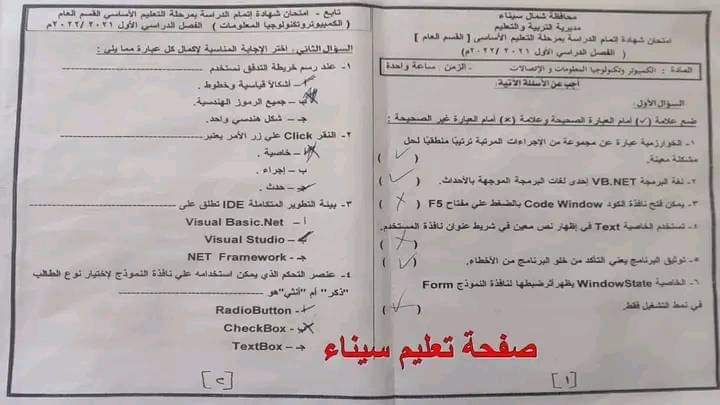 محافظة شمال سيناء
مديرية التربية والتعليم
امتحان شهادة إتمام الدراسة بمرحلة التعليم الأساسى [ القسم العام ]
( الفصل الدراسى الأول ٢٠٢١ /٢٠٢٢م )
المادة : الكمبيوتر وتكنولوجيا المعلومات و الإتصالات - الزمن : ساعة واحدة
أجب عن الأسئلة الآتية:
السؤال الأول:
ضع علامة (✓) أمام العبارة الصحيحة وعلامة (×) أمام العبارة غير الصحيحة :
١- الخوارزمية عبارة عن مجموعة من الإجراءات المرتبة ترتيبًا منطقيًا لحل
مشكلة معينة. ( ✓ )
٢- لغة البرمجة VB.NET إحدى لغات البرمجة الموجهة بالأحداث. ( ✓ )
٣- يمكن فتح نافذة الكود Code Window بالضغط علي مفتاح F5 ( × )
٤- تستخدم الخاصية Text في إظهار نص معين في شريط عنوان نافذة المستخدم.
( × )
٥- توثيق البرنامج يعني التأكد من خلو البرنامج من الأخطاء. ( ✓ )
٦- الخاصية WindowState يظهر أثر ضبطها لنافذة النموذج Form
في نمط التشغيل فقط. ( ✓ )
[١]
تابع - امتحان شهادة إتمام الدراسة بمرحلة التعليم الأساسي القسم العام
( الكمبيوتر وتكنولوجيا المعلومات ) الفصل الدراسي الأول ٢٠٢١ /٢٠٢٢م
السؤال الثاني: اختر الإجابة المناسبة لإكمال كل عبارة مما يلي :
١- عند رسم خريطة التدفق نستخدم
أ- أشكالاً قياسية وخطوط .
ب- جميع الرموز الهندسية.
جـ- شكل هندسي واحد.
٢- النقر Click علي زر الأمر يعتبر
أ- خاصية .
ب - إجراء .
جـ - حدث .
٣- بيئة التطوير المتكاملة IDE تطلق علي
أ - Visual Basic.Net
ب - Visual Studio
جـ - NET Framework
٤- عنصر التحكم الذي يمكن استخدامه علي نافذة النموذج لإختيار نوع الطالب
"ذكر" أم "أنثي" هو
أ - RadioButton
ب - CheckBox
جـ - TextBox
[٢]
صفحة تعليم سيناء